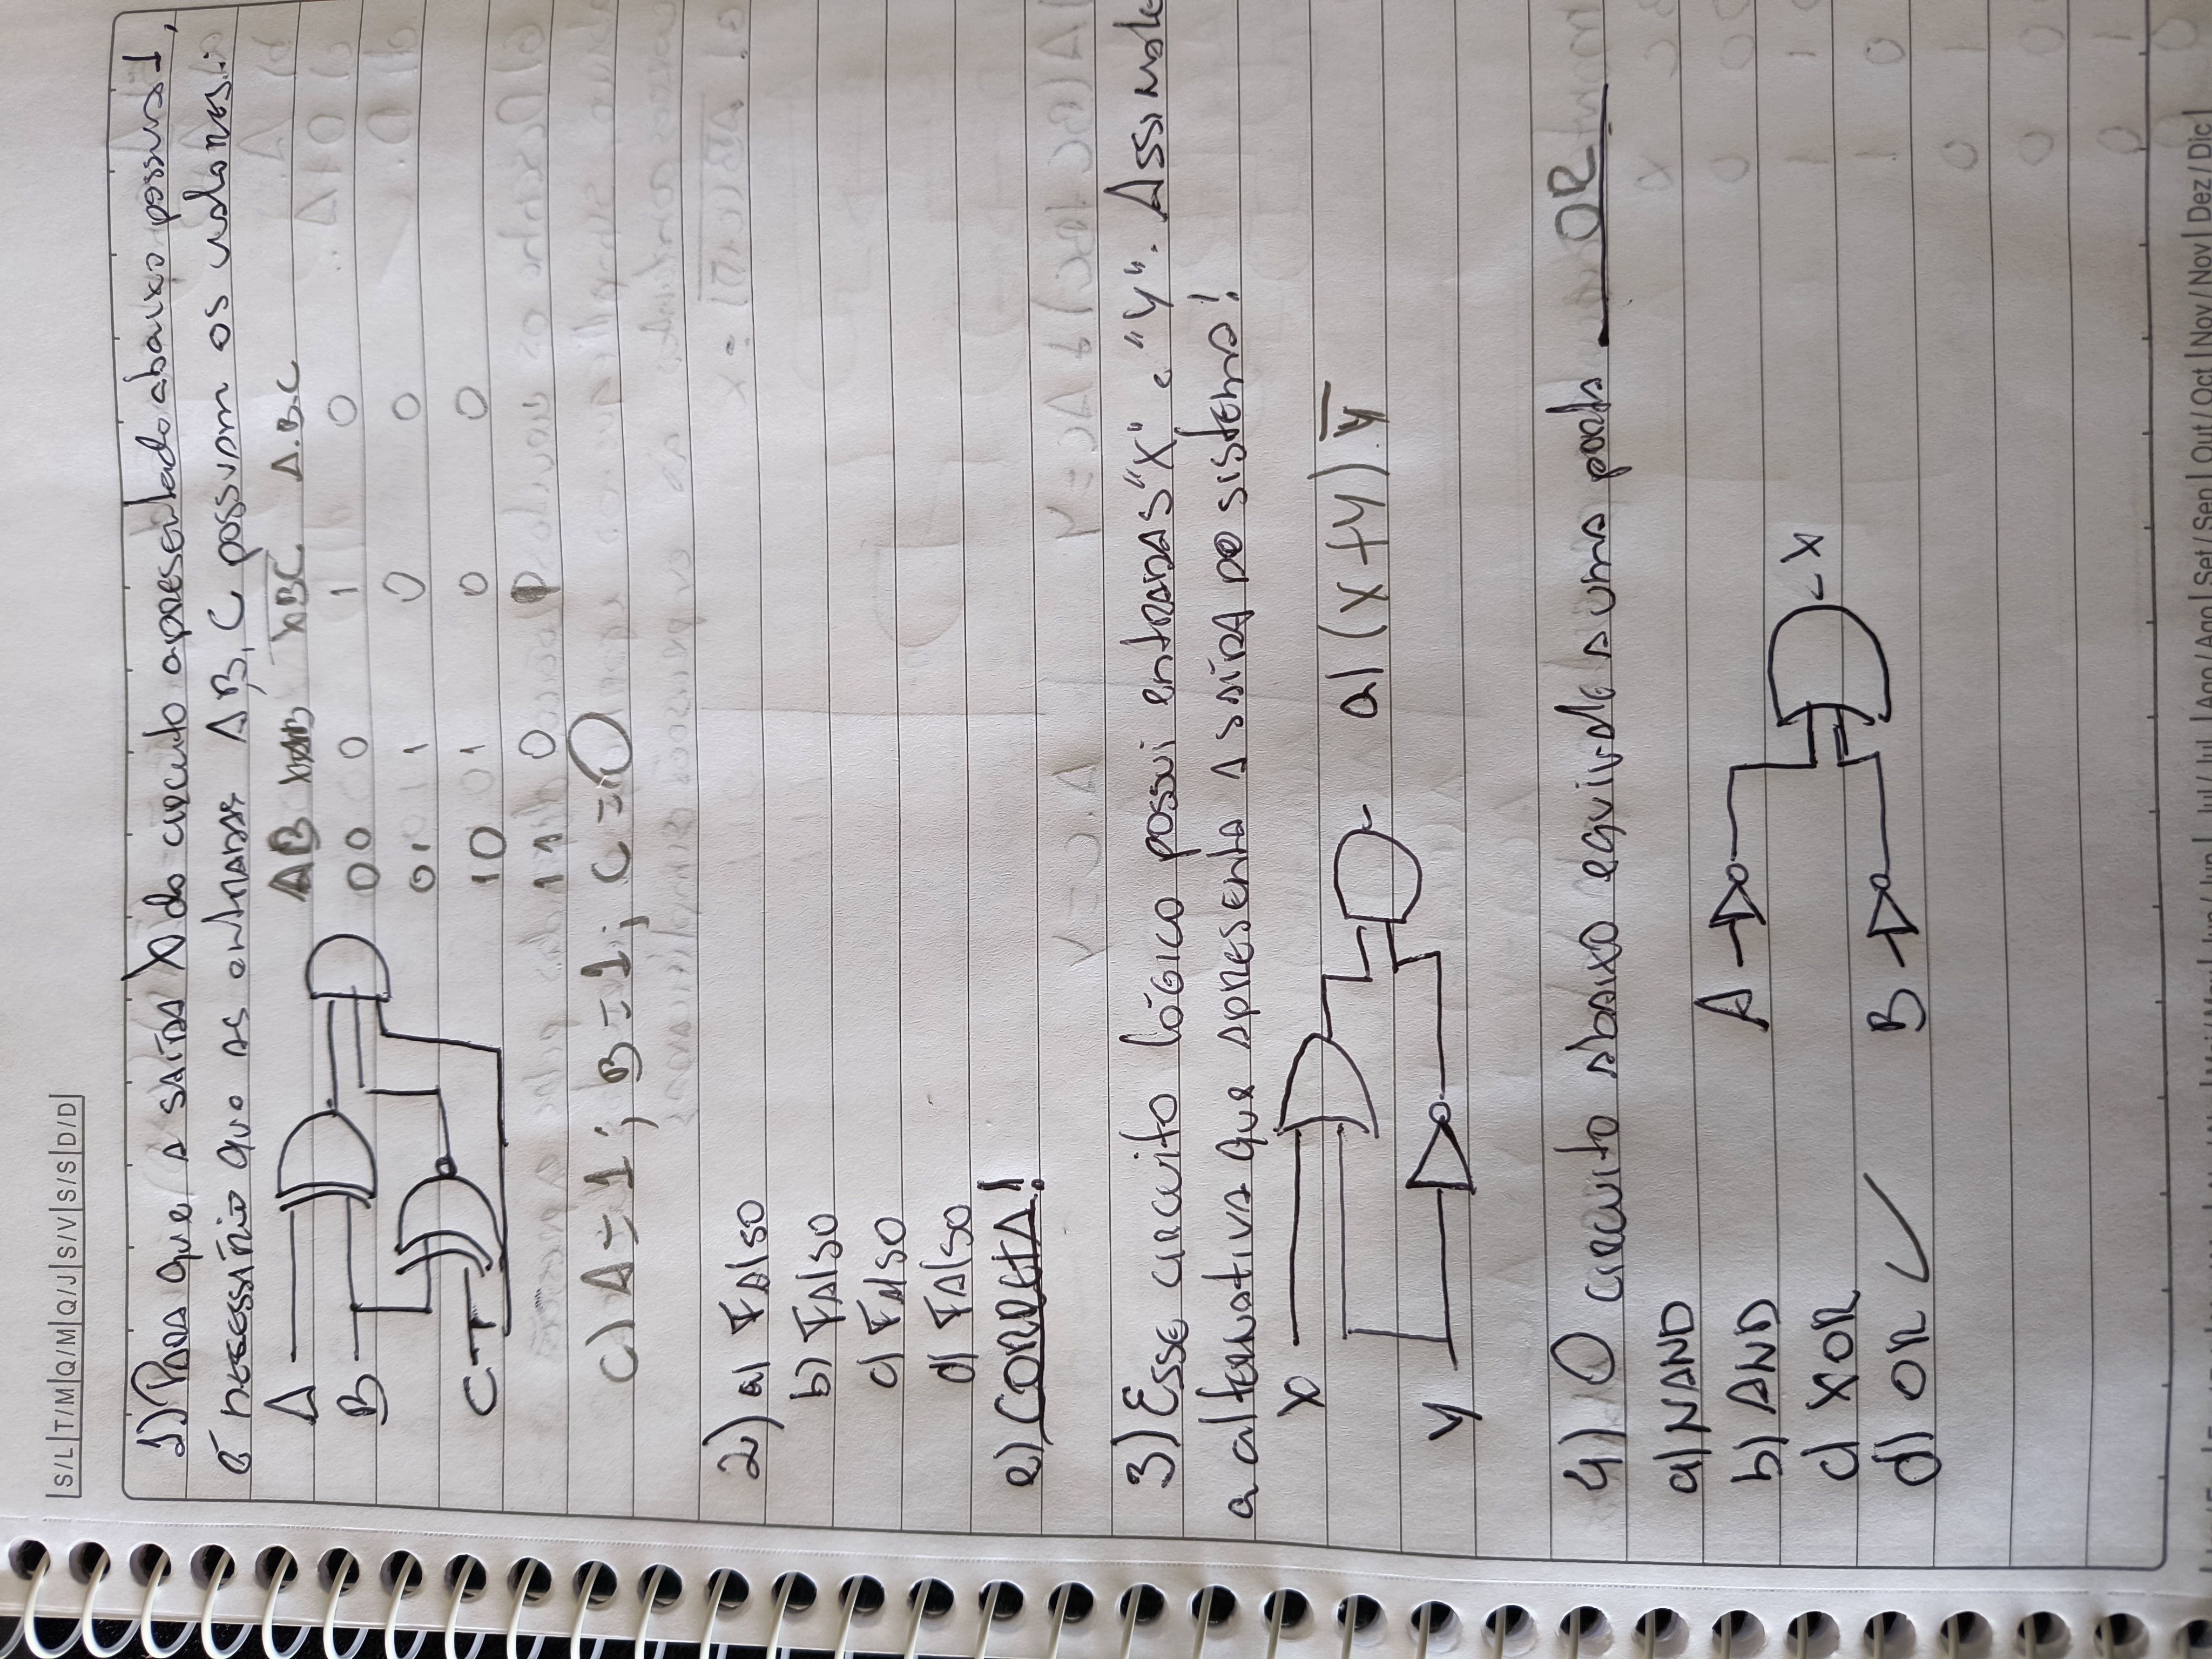 S/L T/M Q/M Q/J S/V S/S D/D
1) Para que a saída X do circuito apresentado abaixo possua 1,
é nesessário que as entradas A, B, C possuam os valores:
A
B
C
AB XAB XBC A.B.C
00 0 1 0
01 1 0 0
10 1 0 0
11 0
c) A=1; B=1; C=0
2) a) Falso
b) Falso
c) Falso
d) Falso
e) CORRETA!
3) Esse circuito lógico possui entradas "X" e "Y". Assinale
a alternativa que apresenta a saída do sistema!
X
Y
a) (X+Y).Y̅
4) O circuito abaixo equivale a uma porta OR
a) NAND
b) AND
c) XOR
d) OR ✓
A
B
X
Jul/Jul Ago/Ago Set/Sep Out/Oct Nov/Nov Dez/Dic